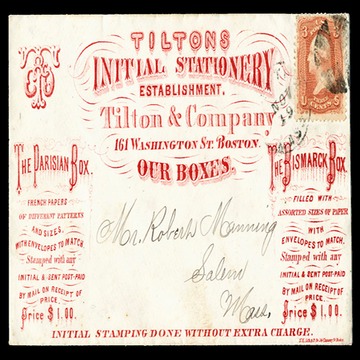 TILTONS
INITIAL STATIONERY
ESTABLISHMENT.
Tilton & Company
161 WASHINGTON ST. BOSTON.
OUR BOXES.
THE PARISIAN BOX.
FRENCH PAPERS
OF DIFFERENT PATTERNS
AND SIZES,
WITH ENVELOPES TO MATCH,
Stamped with any
INITIAL & SENT POST-PAID
BY MAIL ON RECEIPT OF
PRICE.
Price $1.00.
THE BISMARCK BOX.
FILLED WITH
ASSORTED SIZES OF PAPER
WITH
ENVELOPES TO MATCH,
Stamped with any
INITIAL & SENT POST-PAID
BY MAIL ON RECEIPT OF
PRICE.
Price $1.00.
Mr. Robert Manning
Salem
Mass.
INITIAL STAMPING DONE WITHOUT EXTRA CHARGE.